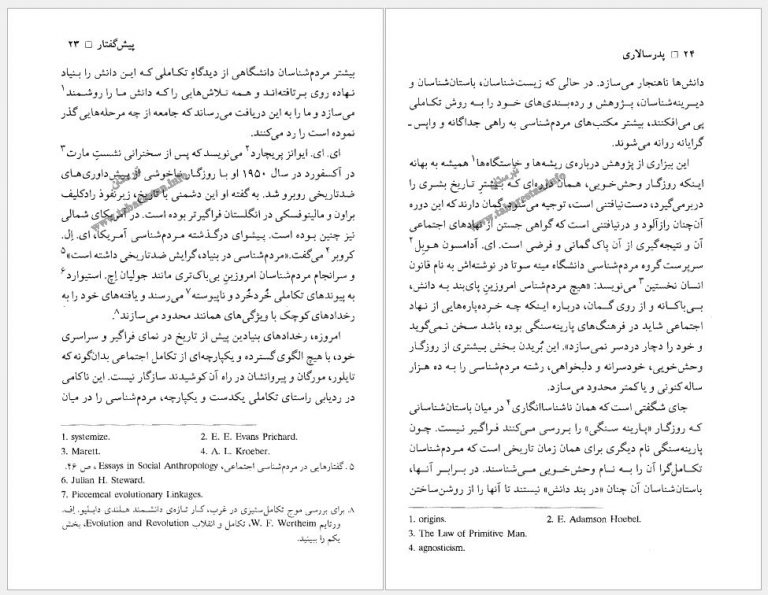 پیش‌گفتار □ ۲۳
بیشتر مردم‌شناسان دانشگاهی از دیدگاهِ تکاملی که این دانش را بنیاد
نهاده روی برتافته‌اند و همه تلاش‌هایی را که دانش ما را روشمند۱
می‌سازد و ما را به این دریافت می‌رساند که جامعه از چه مرحله‌هایی گذر
نموده است را رد می‌کنند.
ای. ای. ایوانز پریچارد۲ می‌نویسد که پس از سخنرانی نشستِ مارت۳
در آکسفورد در سال ۱۹۵۰ او با روزگار ناخوشی از پیش‌داوری‌های
ضدتاریخی روبرو شد. به گفته او این دشمنی با تاریخ، زیرنفوذ رادکلیف
براون و مالینوفسکی در انگلستان فراگیرتر بوده است. در آمریکای شمالی
نیز چنین بوده است. پیشوای درگذشته مردم‌شناسی آمریکا، ای. اِل.
کروبر۴ می‌گفت.«مردم‌شناسی در بنیاد، گرایش ضدتاریخی داشته است»۵
و سرانجام مردم‌شناسان امروزینِ بی‌باک‌تری مانند جولیان اِچ. استیوارد۶
به پیوندهای تکاملی خُردخُرد و ناپیوسته۷ می‌رسند و یافته‌های خود را به
رخدادهای کوچک با ویژگی‌های همانند محدود می‌سازند۸.
امروزه، رخدادهای بنیادین پیش از تاریخ در نمای فراگیر و سراسری
خود، با هیچ الگوی گسترده و یکپارچه‌ای از تکامل اجتماعی بدان‌گونه که
تایلور، مورگان و پیروانشان در راه آن کوشیدند سازگار نیست. این ناکامی
در ردیابی راستای تکاملی یکدست و یکپارچه، مردم‌شناسی را در میان
1. systemize.
2. E. E. Evans Prichard.
3. Marett.
4. A. L. Kroeber.
۵. گفتارهایی در مردم‌شناسی اجتماعی، Essays in Social Anthropology، ص ۲۶.
6. Julian H. Steward.
7. Piecemeal evolutionary Linkages.
۸. برای بررسی موج تکامل‌ستیزی در غرب، کار تازه‌ی دانشمند هلندی دابلیو. اِف.
ورتایم W. F. Wertheim، تکامل و انقلاب Evolution and Revolution، بخش
یکم را ببینید.
۲۴ □ پدرسالاری
دانش‌ها ناهنجار می‌سازد. در حالی که زیست‌شناسان، باستان‌شناسان و
دیرینه‌شناسان، پژوهش و رده‌بندی‌های خود را به روش تکاملی
پی می‌افکنند، بیشتر مکتب‌های مردم‌شناسی به راهی جداگانه و واپس ـ
گرایانه روانه می‌شوند.
این بیزاری از پژوهش درباره‌ی ریشه‌ها و خاستگاه‌ها۱ همیشه به بهانه
اینکه روزگار وحش‌خویی، همان دوره‌ای که بیشترِ تاریخ بشری را
دربرمی‌گیرد، دست‌نیافتنی است، توجیه می‌شود. گمان دارند که این دوره
آن‌چنان رازآلود و درنیافتنی است که گواهی جستن از نهادهای اجتماعی
آن و نتیجه‌گیری از آن پاک گمانی و فرضی است. ای. آدامسون هوبِل۲
سرپرست گروه مردم‌شناسی دانشگاه مینه سوتا در نوشته‌اش به نام قانون
انسان نخستین۳ می‌نویسد: «هیچ مردم‌شناس امروزینِ پای‌بند به دانش،
بی‌باکانه و از روی گمان، درباره اینکه چه خرده‌پاره‌هایی از نهاد
اجتماعی شاید در فرهنگ‌های پارینه‌سنگی بوده باشد سخن نمی‌گوید
و خود را دچار دردسر نمی‌سازد». این بُریدن بخش بیشتری از روزگار
وحش‌خویی، خودسرانه و دلبخواهی، رشته مردم‌شناسی را به ده هزار
ساله کنونی و یا کمتر محدود می‌سازد.
جای شگفتی است که همان ناشناساانگاری۴ در میان باستان‌شناسانی
که روزگار «پارینه سنگی» را بررسی می‌کنند فراگیر نیست. چون
پارینه‌سنگی نام دیگری برای همان زمان تاریخی است که مردم‌شناسان
تکامل‌گرا آن را به نام وحش‌خویی می‌شناسند. در برابر آنها،
باستان‌شناسان آن چنان «در بند دانش» نیستند تا آنها را از روشن‌ساختن
1. origins.
2. E. Adamson Hoebel.
3. The Law of Primitive Man.
4. agnosticism.